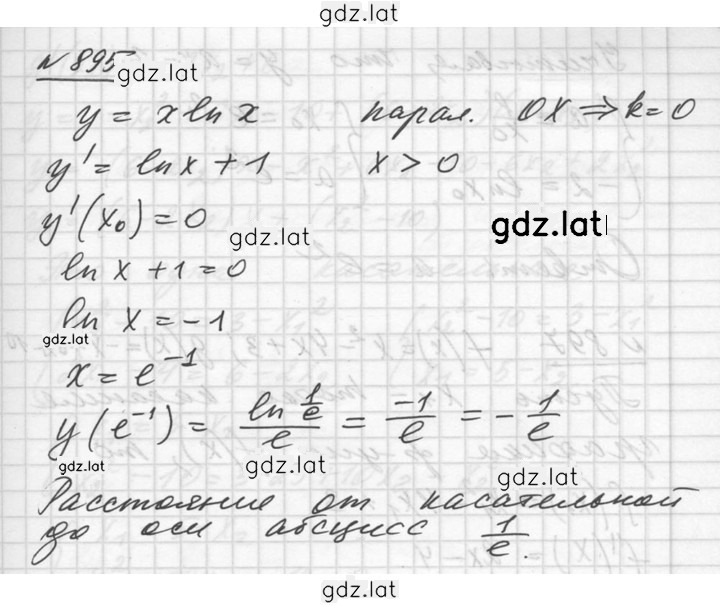 gdz.lat
№ 895
gdz.lat
y = x ln x парал. OX ⇒ k = 0
y' = ln x + 1 x > 0
y'(x₀) = 0
gdz.lat
gdz.lat
ln x + 1 = 0
ln x = -1
gdz.lat
x = e⁻¹
y(e⁻¹) = (ln 1/e)/e = -1/e = - 1/e
gdz.lat
gdz.lat
gdz.lat
Расстояние от касательной
до оси абсцисс 1/e.
gdz.lat